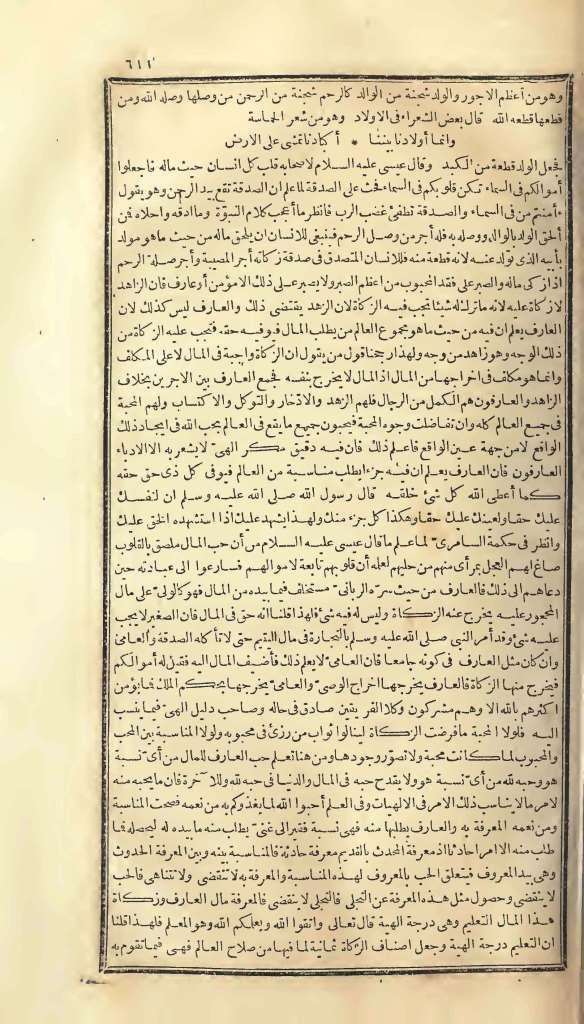 ٦١١
وهو من أعظم الاجور والولد شجنة من الوالد كالرحم شجنة من الرحمن من وصلها وصله الله ومن
قطعها قطعه الله قال بعض الشعراء فى الاولاد وهو من شعر الحماسة
وانما أولادنا بيننا * أكبادنا تمشى على الارض
فجعل الولد قطعة من الكبد وقال عيسى عليه السلام لاصحابه قلب كل انسان حيث ماله فاجعلوا
أموالكم فى السماء تكن قلوبكم فى السماء فحث على الصدقة لما علم ان الصدقة تقع بيد الرحمن وهو يقول
ءأمنتم من فى السماء والصدقة تطفئ غضب الرب فانظر ما أعجب كلام النبوّة وما ادقه واحلاه فمن
ألحق الولد بالوالد ووصله به فله أجر من وصل الرحم فينبغى للانسان ان يلحق ماله من حيث ما هو مولد
بأبيه الذى تولد عنه لانه قطعة منه فللانسان المتصدق فى صدقة زكاته أجر المصيبة وأجر صلة الرحم
اذا زكى ماله والصبر على فقد المحبوب من اعظم الصبر ولا يصبر على ذلك الا مؤمن أو عارف فان الزاهد
لا زكاة عليه لانه ما ترك له شيئا تجب فيه الزكاة لان الزهد يقتضى ذلك والعارف ليس كذلك لان
العارف يعلم ان فيه من حيث ما هو مجموع العالم من يطلب المال فيوفيه حقه فتجب عليه الزكاة من
ذلك الوجه وهو زاهد من وجه ولهذا رجحنا قول من يقول ان الزكاة واجبة فى المال لا على المكلف
وانما هو مكلف فى اخراجها من المال اذ المال لا يخرج بنفسه فجمع العارف بين الاجرين بخلاف
الزاهد والعارفون هم الكمل من الرجال فلهم الزهد والادّخار والتوكل والاكتساب ولهم المحبة
فى جميع العالم كله وان تفاضلت وجوه المحبة فيحبون جميع ما يقع فى العالم بحب الله فى ايجاد ذلك
الواقع لا من جهة عين الواقع فاعلم ذلك فان فيه دقيق مكر الهىّ لا يشعر به الا الادباء
العارفون فان العارف يعلم ان فيه جزءا يطلب مناسبة من العالم فيوفى كل ذى حق حقه
كما أعطى الله كل شئ خلقه قال رسول الله صلى الله عليه وسلم ان لنفسك
عليك حقا ولعينك عليك حقا وهكذا كل جزء منك ولهذا يشهد عليك اذا استشهده الحق عليك
وانظر فى حكمة السامرىّ لما علم ما قال عيسى عليه السلام من أن حب المال ملصق بالقلوب
صاغ لهم العجل بمرأى منهم من حليهم لعلمه أن قلوبهم تابعة لاموالهم فسارعوا الى عبادته حين
دعاهم الى ذلك فالعارف من حيث سره الربانىّ مستخلف فيما بيده من المال فهو كالولىّ على مال
المحجور عليه يخرج عنه الزكاة وليس له فيه شئ فلهذا قلنا انه حق فى المال فان الصغير لا يجب
عليه شئ وقد أمر النبى صلى الله عليه وسلم بالتجارة فى مال اليتيم حتى لا تأكله الصدقة والعامىّ
وان كان مثل العارف فى كونه جامعا فان العامىّ لا يعلم ذلك فأضيف المال اليه فقيل له أموالكم
فيخرج منها الزكاة فالعارف يخرجها اخراج الوصىّ والعامىّ يخرجها بحكم الملك فما يؤمن
اكثرهم بالله الا وهم مشركون وكلا الفريقين صادق فى حاله وصاحب دليل الهىّ فيما ينسب
اليه فلولا المحبة ما فرضت الزكاة لينالوا ثواب من رزئ فى محبوبه ولولا المناسبة بين المحب
والمحبوب لما كانت محبة ولا تصوّر وجودها ومن هنا تعلم حب العارف للمال من أىّ نسبة
هو وحبه لله من أىّ نسبة هو ولا يقدح حبه فى المال والدنيا فى حبه لله وللآخرة فان ما يحبه منه
لامر ما لا يناسب ذلك الامر فى الالهيات وفى العلم أحبوا الله لما يغذوكم به من نعمه فصحت المناسبة
ومن نعمه المعرفة به والعارف يطلبها منه فهى نسبة فقير الى غنىّ يطلب منه ما بيده له ليحصله فما
طلب منه الا امرا حادثا اذ معرفة المحدث بالقديم معرفة حادثة فالمناسبة بينه وبين المعرفة الحدوث
وهى بيد المعروف فيتعلق الحب بالمعروف لهذه المناسبة والمعرفة به لا تنقضى ولا تتناهى فالحب
لا ينقضى وحصول مثل هذه المعرفة عن التجلى فالتجلى لا ينقضى فالمعرفة مال العارف وزكاة
هذا المال التعليم وهى درجة الهية قال تعالى واتقوا الله ويعلمكم الله وهو المعلم فلهذا قلنا
ان التعليم درجة الهية وجعل اصناف الزكاة ثمانية لما فيها من صلاح العالم فهى فيما تقوم به